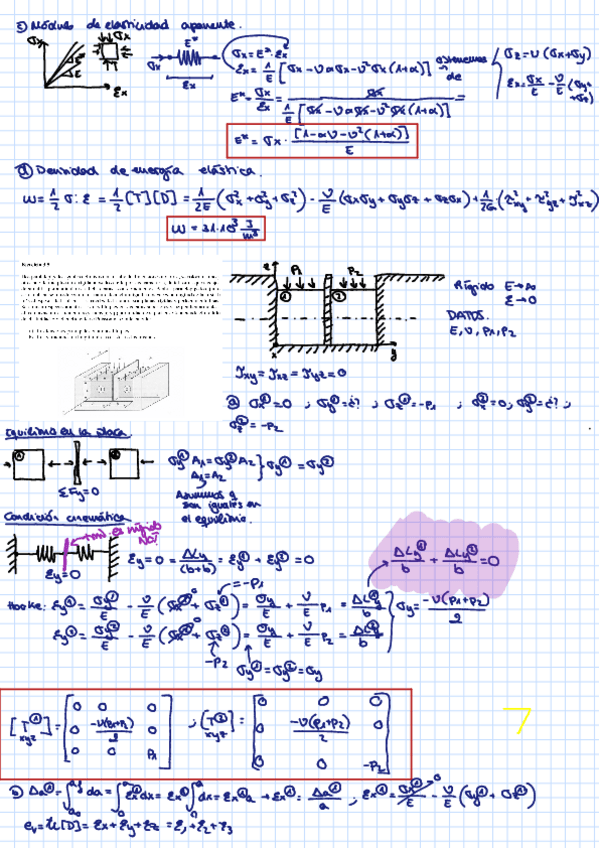 c) Módulo de elasticidad aparente.
σx
εx
E
σx
E*
εx
σx = E* · εx
εx = 1/E [σx − νασx − ν²σx(1+α)]
obtenemos de
σz = ν(σx + σy)
εx = σx/E − ν/E (σy + σz)
E* = σx/εx = σx / (1/E [σx − νασx − ν²σx(1+α)]) =
E* = σx · [1 − αν − ν²(1+α)] / E
d) Densidad de energía elástica.
ω = 1/2 σ : ε = 1/2 [T][D] = 1/2E (σx² + σy² + σz²) − ν/E (σxσy + σyσz + σzσx) + 1/2G (τxy² + τyz² + τxz²)
ω = 31·10³ J/m³
z
P1
P2
①
②
x
y
Rígido E→∞
ε→0
DATOS.
E, ν, P1, P2
τxy = τxz = τyz = 0
a) σx① = 0 ; σy① = ¿? ; σz① = −P1 ; σx② = 0 ; σy② = ¿? ;
σz② = −P2
Equilibrio en la placa
① ②
ΣFy = 0
σy① A1 = σy② A2
A1 = A2
} σy① = σy②
Asumimos q son iguales en el equilibrio.
Condición cinemática
es rígido NO!
εy = 0
εy = 0 = ΔLy/(b+b) = εy① + εy② = 0
ΔL①/b + ΔL②/b = 0
Hooke: εy① = σy①/E − ν/E (σx① + σz①) = σy/E + ν/E P1 = ΔL①/b
= −P1
εy② = σy②/E − ν/E (σx② + σz②) = σy/E + ν/E P2 = ΔL②/b
−P2
σy = −ν(P1+P2)/2
σy① = σy② = σy
[T①xyz] = [0 0 0; 0 −ν(P1+P2)/2 0; 0 0 P1] ; [T②xyz] = [0 0 0; 0 −ν(P1+P2)/2 0; 0 0 −P2]
7
Δa① = ∫ da = ∫ εx① dx = εx① ∫ dx = εx① a → εx① = Δa①/a ; εx① = σx①/E − ν/E (σy① + σz①)
ev = tr[D] = εx + εy + εz = ε1 + ε2 + ε3